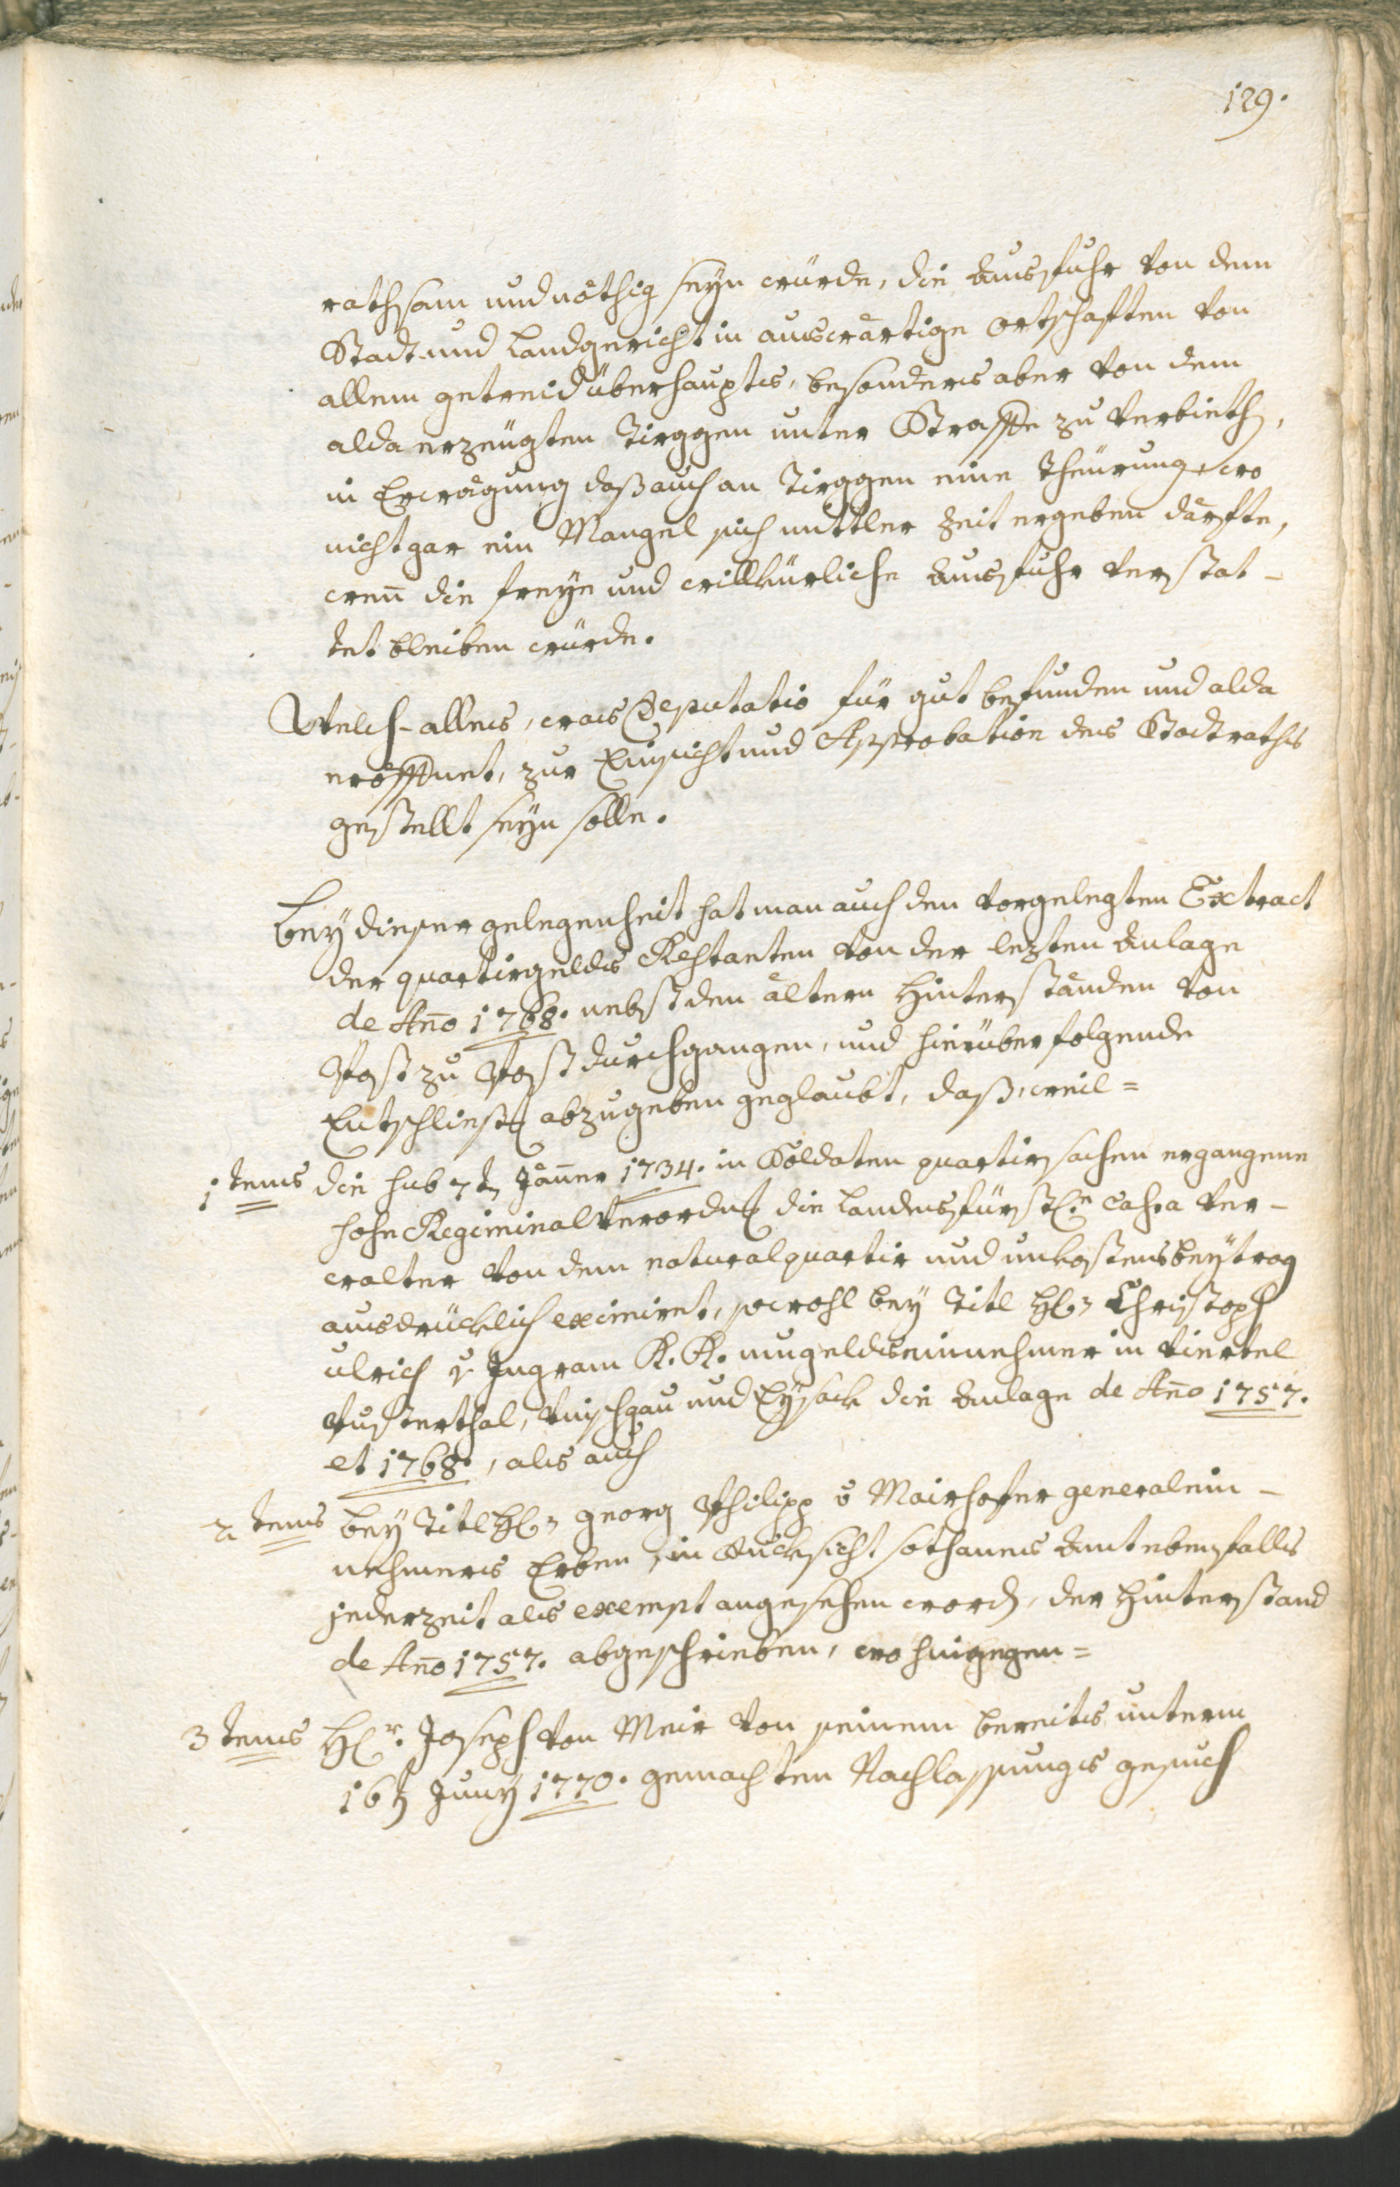 129.
rathsam und nöthig seyn würde, die Ausfuhr von dem
Stadt- und Landgericht in auswärtige Ortschaften von
allem getreid überhaupts, besonders aber von dem
alda erzeugten Tirggen unter Straffe zu verbieth,
in Erwägung daß auch an Tirggen eine Theurung, wo
nicht gar ein Mangel sich mittler Zeit ergeben därfte,
wen̄ die freye und willkürliche Ausfuhr verstat-
tet bleiben würde.
Welch-alles, was Deputatio für gut befunden und alda
eröffnet, zur Einsicht und Approbation des Stadtraths
gestellt seyn solle.
Bey dieser gelegenheit hat man auch den vorgelegten Extract
der quartirgelds Restanten von der lezten Anlage
de An̄o 1768. nebst den ältern Hinterständen von
Post zu Post durchgangen, und hierüber folgende
Entschliess abzugeben geglaubt, daß, weil=
1tens die sub 7t Jän̄er 1734. in Soldaten quartirsachen ergangene
hohe Regiminal Verordng die Landesfürstl.n Cassa Ver-
walter von dem natural quartir und unkostensbeytrag
ausdrücklich eximiret, sowohl bey Titl H. Christoph
Ulrich v. Ingram K. K. umgeldseinnehmer in Viertel
Pusterthal, Vinschgau und Eysack die Anlage de An̄o 1757.
et 1768., als auch
2tens bey Titl H. georg Philipp v Mairhofer generalein-
nehmers Erben, in Rücksicht sothanes Amt ebenfalls
jederzeit als exempt angesehen word, der Hinterstand
de An̄o 1757. abgeschrieben, wo hingegen=
3tens H.r Joseph von Meir von seinem bereits unterm
16t Juny 1770. gemachten Nachlassungs gesuch